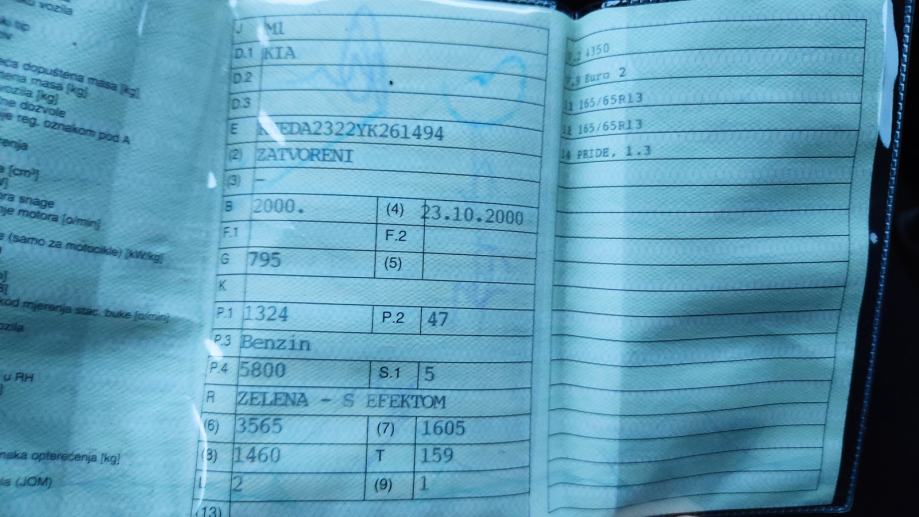 vozila
tip
dopuštena masa [kg]
masa [kg]
vozila [kg]
dozvole
reg. oznakom pod A
[cm³]
snage
motora [o/min]
(samo za motocikle) [kW/kg]
kod mjerenja stac. buke [o/min]
u RH
opterećenja [kg]
(JOM)
J M1
D.1 KIA
D.2
D.3
E
(2) ZATVORENI
(3) -
B 2000. (4) 23.10.2000
F.1 F.2
G 795 (5)
K
P.1 1324 P.2 47
P.3 Benzin
P.4 5800 S.1 5
R ZELENA - S EFEKTOM
(6) 3565 (7) 1605
(8) 1460 T 159
L 2 (9) 1
(13)
4350
Euro 2
165/65R13
165/65R13
PRIDE, 1.3